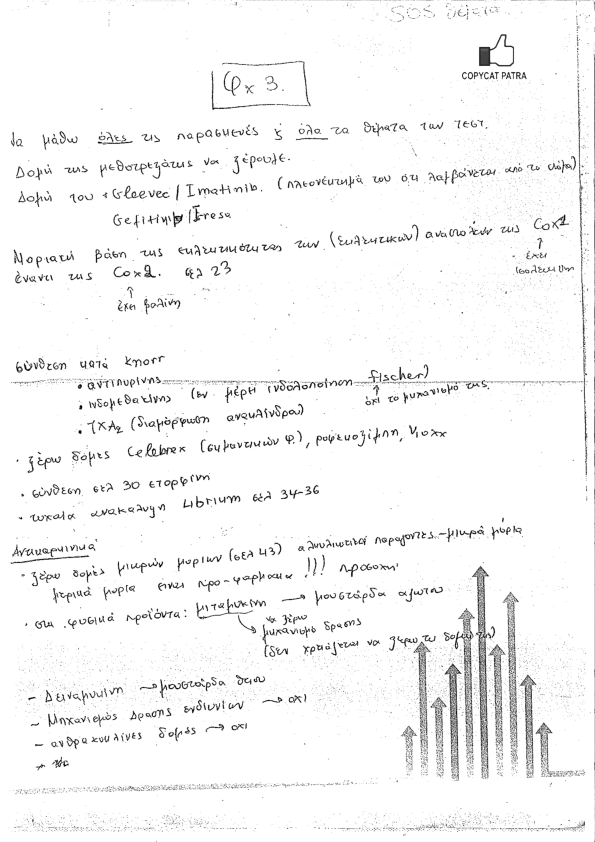 SOS θέματα
COPYCAT PATRA
Φχ 3.
Να μάθω όλες τις παρασμενές & όλα τα θέματα των τεστ.
Δομή της μεθοτρεξάτης να ξέρουμε.
Δομή του Gleevec / Imatinib. (πλεονέκτημά του ότι λαμβάνεται από το στόμα)
Gefitinib / Iresa
Μοριακή βάση της εκλεκτικότητας των (εκλεκτικών) αναστολέων της Cox2
έναντι της Cox2. σελ 23
↑ έχει
ισολευκίνη
↑
έχει βαλίνη
σύνθεση κατά Knorr
• αντιπυρίνης
• ινδομεθακίνης (εν μέρει ινδολοποίηση fischer)
↑ όχι το μηχανισμό της.
• TXA2 (διαμόρφωση ανακλίνδρα)
• ξέρω δομές Celebrex (σημαντικών φ.), ροφεκοξίμπη, Vioxx
• σύνθεση σελ 30 ετορφίνη
• τυχαία ανακάλυψη Librium σελ 34-36
Αντικαρκινικά
• ξέρω δομές μικρών μορίων (σελ 43) αλκυλιωτικοί παράγοντες - μικρά μόρια
μερικά μόρια είναι προ-φάρμακα !!! προσοχή
• στα φυσικά προϊόντα: μιταμυκίνη → μουστάρδα αζώτου
να ξέρω
μηχανισμό δράσης
(δεν χρειάζεται να ξέρω τη δομή της)
- Δειναμυκίνη → μουστάρδα θείου
- Μηχανισμός δράσης ενδιυνίων → όχι
- ανθρακυκλίνες δομές → όχι